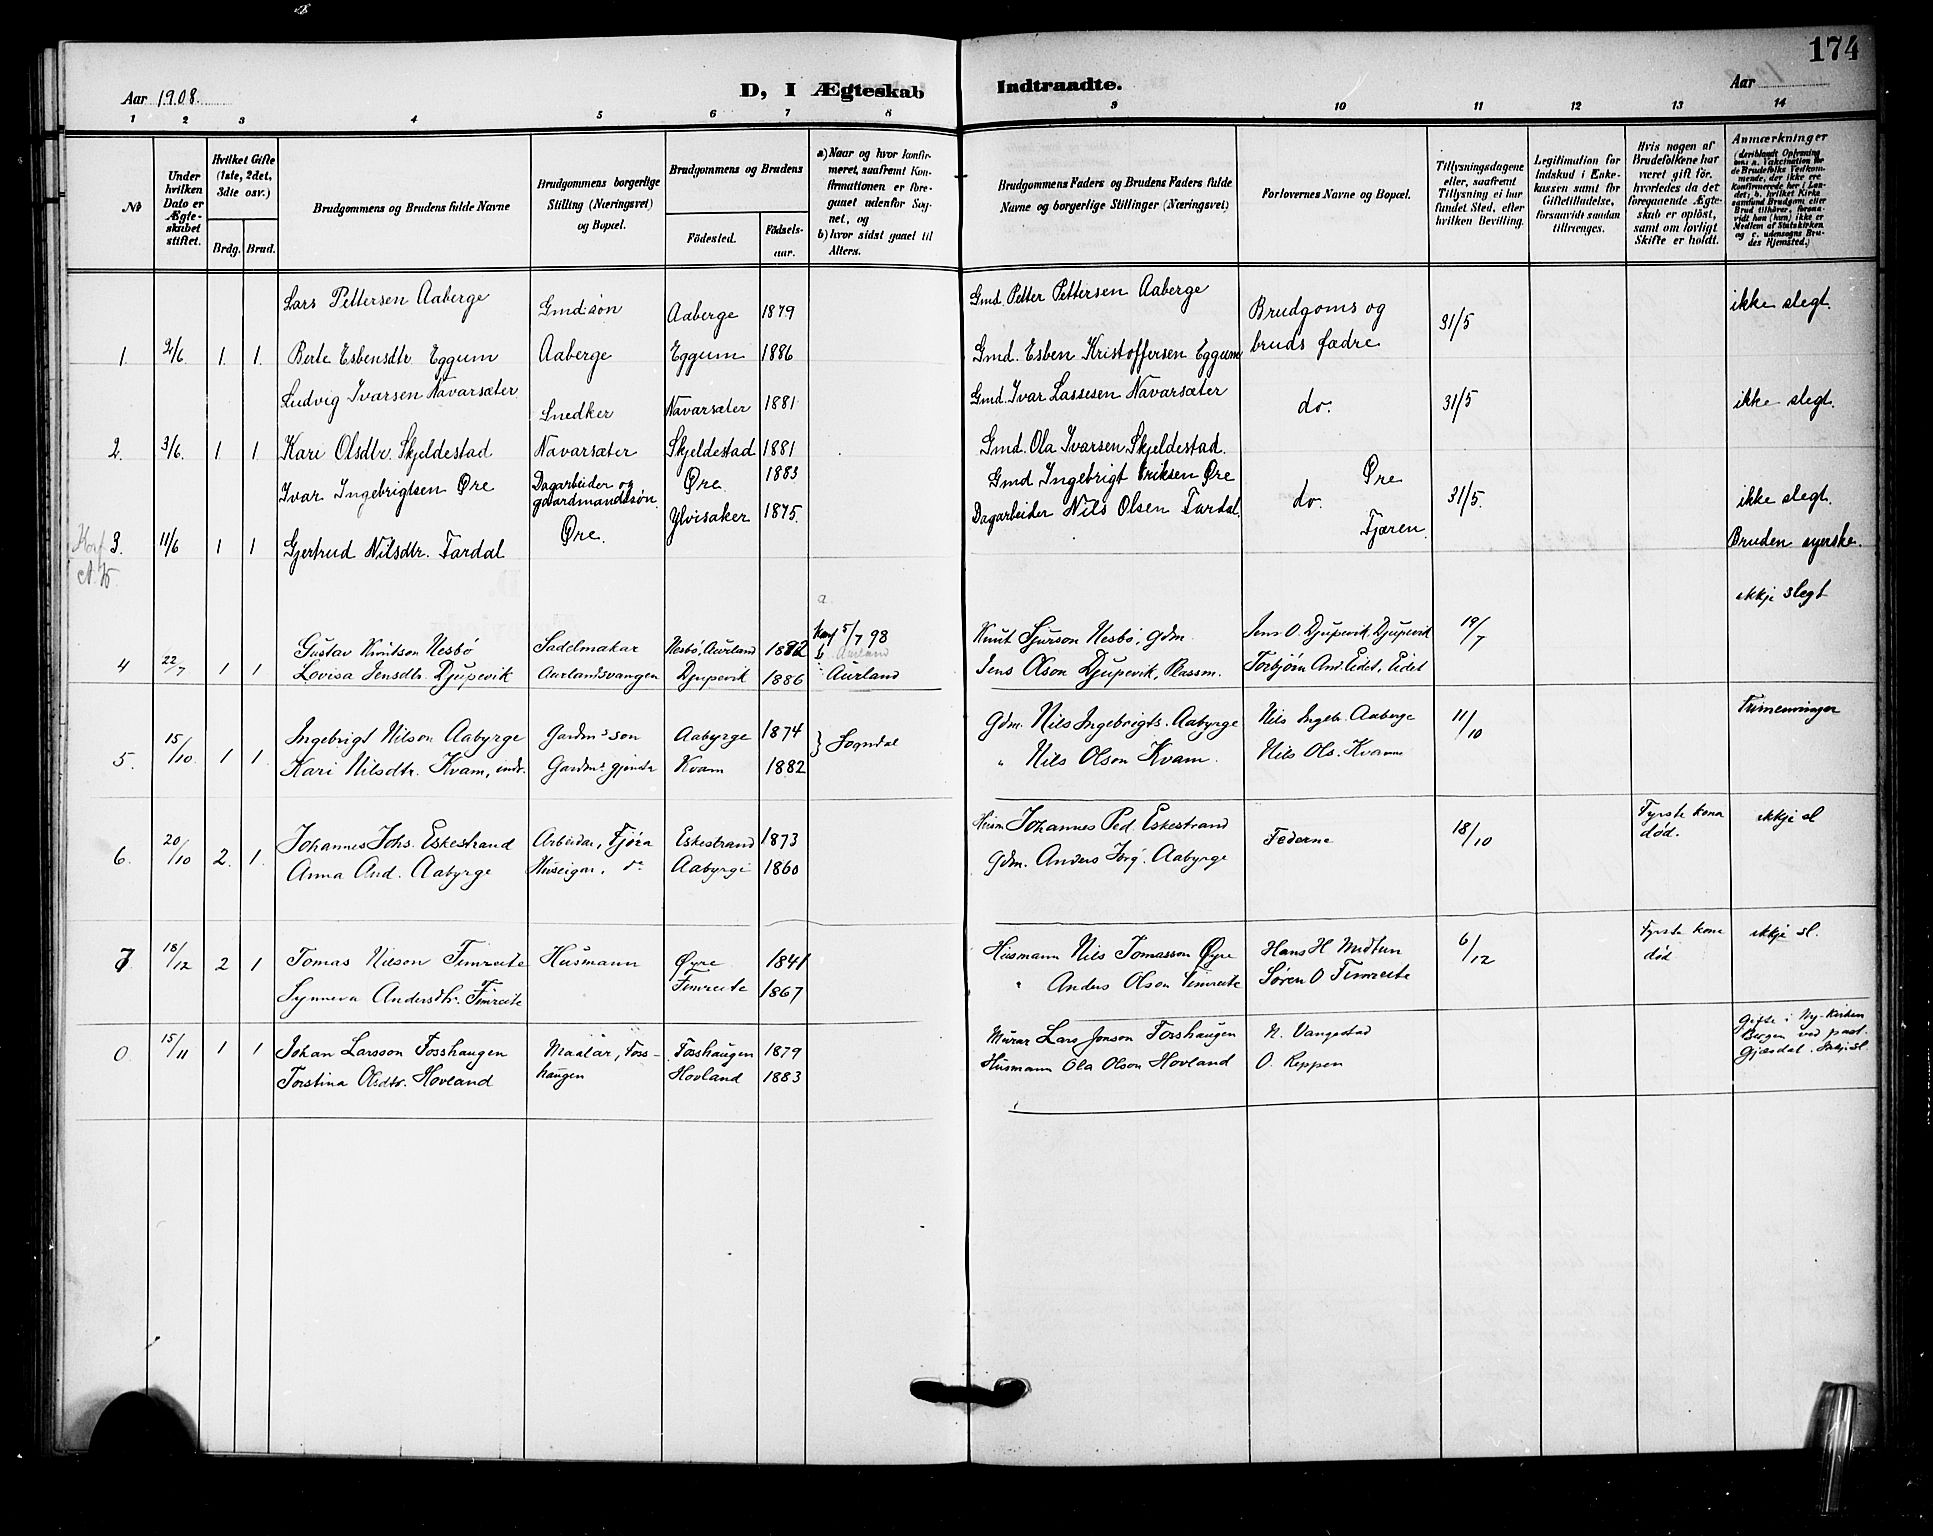 174
Aar 1908.
D, I Ægteskab Indtraadte.
Aar
1 2 3 4 5 6 7 8 9 10 11 12 13 14
№
Under hvilken Dato er Ægteskabet stiftet.
Hvilket Gifte (1ste, 2det, 3die osv.)
Brdg. Brud.
Brudgommens og Brudens fulde Navne
Brudgommens borgerlige Stilling (Næringsvei) og Bopæl.
Brudgommens og Brudens
Fødested. Fødselsaar.
a) Naar og hvor konfirmeret, saafremt Konfirmationen er foregaaet udenfor Sognet, og
b) hvor sidst gaaet til Alters.
Brudgommens Faders og Brudens Faders fulde Navne og borgerlige Stillinger (Næringsvei)
Forlovernes Navne og Bopæl.
Tillysningsdagene eller, saafremt Tillysning ei har fundet Sted, efter hvilken Bevilling.
Legitimation for Indskud i Enkekassen samt for Giftetilladelse, forsaavidt saadan tiltrænges.
Hvis nogen af Brudefolkene har været gift før, hvorledes da det foregaaende Ægteskab er opløst, samt om lovligt Skifte er holdt.
Anmærkninger
Lars Pettersen Aaberge Gmd.søn Aaberge 1879 Gmd. Petter Pettersen Aaberge Brudgoms og 31/5 ikke slegt.
1. 2/6 1. 1. Berte Esbensdtr. Eggum Aaberge Eggum 1886 Gmd. Esben Kristoffersen Eggum bruds fædre
Ludvig Ivarsen Navarsæter Snedker Navarsæter 1881 Gmd. Ivar Lassesen Navarsæter do. 31/5 ikke slegt.
2. 3/6. 1 1. Kari Olsdtr. Skjeldestad Navarsæter Skjeldestad 1881 Gmd. Ola Ivarsen Skjeldestad.
Ivar Ingebrigtsen Øre Dagarbeider og gaardmandssøn. Øre 1883 Gmd Ingebrigt Eriksen Øre do. Øre 31/5. ikke slegt.
3. 11/6 1 1 Gjertrud Nilsdtr. Fardal Øre. Ylvisaker 1875. Dagarbeider Nils Olsen Fardal. Fjæren. Bruden syerske.
a.
ikkje slegt
Gustav Knutson Nesbø Sadelmakar Nesbø, Aurland 1882 Konf 5/7 98 Knut Sjurson Nesbø, gdm. Jens O. Djupevik, Djupevik 19/7
b Aurland
4 22/7 1 1 Lovisa Jensdtr. Djupevik Aurlandsvangen Djupevik 1886 Aurland Jens Olson Djupevik, Plassm. Torbjørn And. Eidet, Eidet
Ingebrigt Nilson Aabyrge Gardms son Aabyrge 1874 } Sogndal Gdm. Nils Ingebrigts. Aabyrge Nils Ingebr. Aaberge 11/10 Trimenninger
5. 15/10. 1 1. Kari Nilsdtr. Kvam, Gardms gjenta Kvam 1882 " Nils Olson Kvam. Nils Ols. Kvamme
Johannes Johs. Eskestrand Arbeidar, Fjøra Eskestrand 1873 Husm Johannes Ped. Eskestrand Federne 18/10 Fyrste kona død. ikkje sl
6. 20/10 2. 1. Anna And. Aabyrge Huseigar, do Aabyrge 1860 Gdm. Anders Aabyrge
7 18/12 2 1 Tomas Nilson Fimreite Husmann Øyre 1841 Husmann Nils Tomasson Øyre Hans H Midtun 6/12 Fyrste kone død ikkje sl.
Synneva Andersdtr. Fimreite Fimreite 1867 " Anders Olson Fimreite Søren O Fimreite
0. 15/11 1 1 Johan Larsson Fosshaugen Maalar, Fosshaugen Fosshaugen 1879 Murar Lars Jonson Fosshaugen N. Vangestad Gifte i Ny-kirken Bergen ved past. Gjæsdal.
Torstina Olsdtr. Hovland Hovland 1883 Husmann Ola Olson Hovland O. Reppen